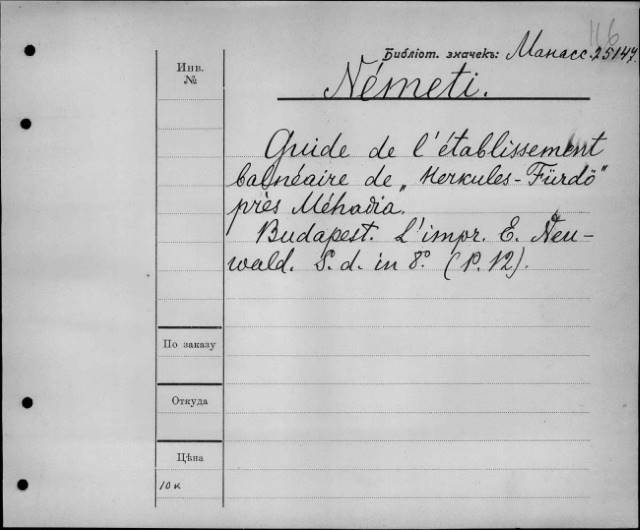 116
Библіот. значекъ: Манасс. 25147.
Инв.
№
Németi.
Guide de l'établissement
balnéaire de „Herkules-Fürdő"
près Méhadia.
Budapest. L'impr. E. Neu-
wald. S. d. in 8º. (P. 12).
По заказу
Откуда
Цѣна
10 к